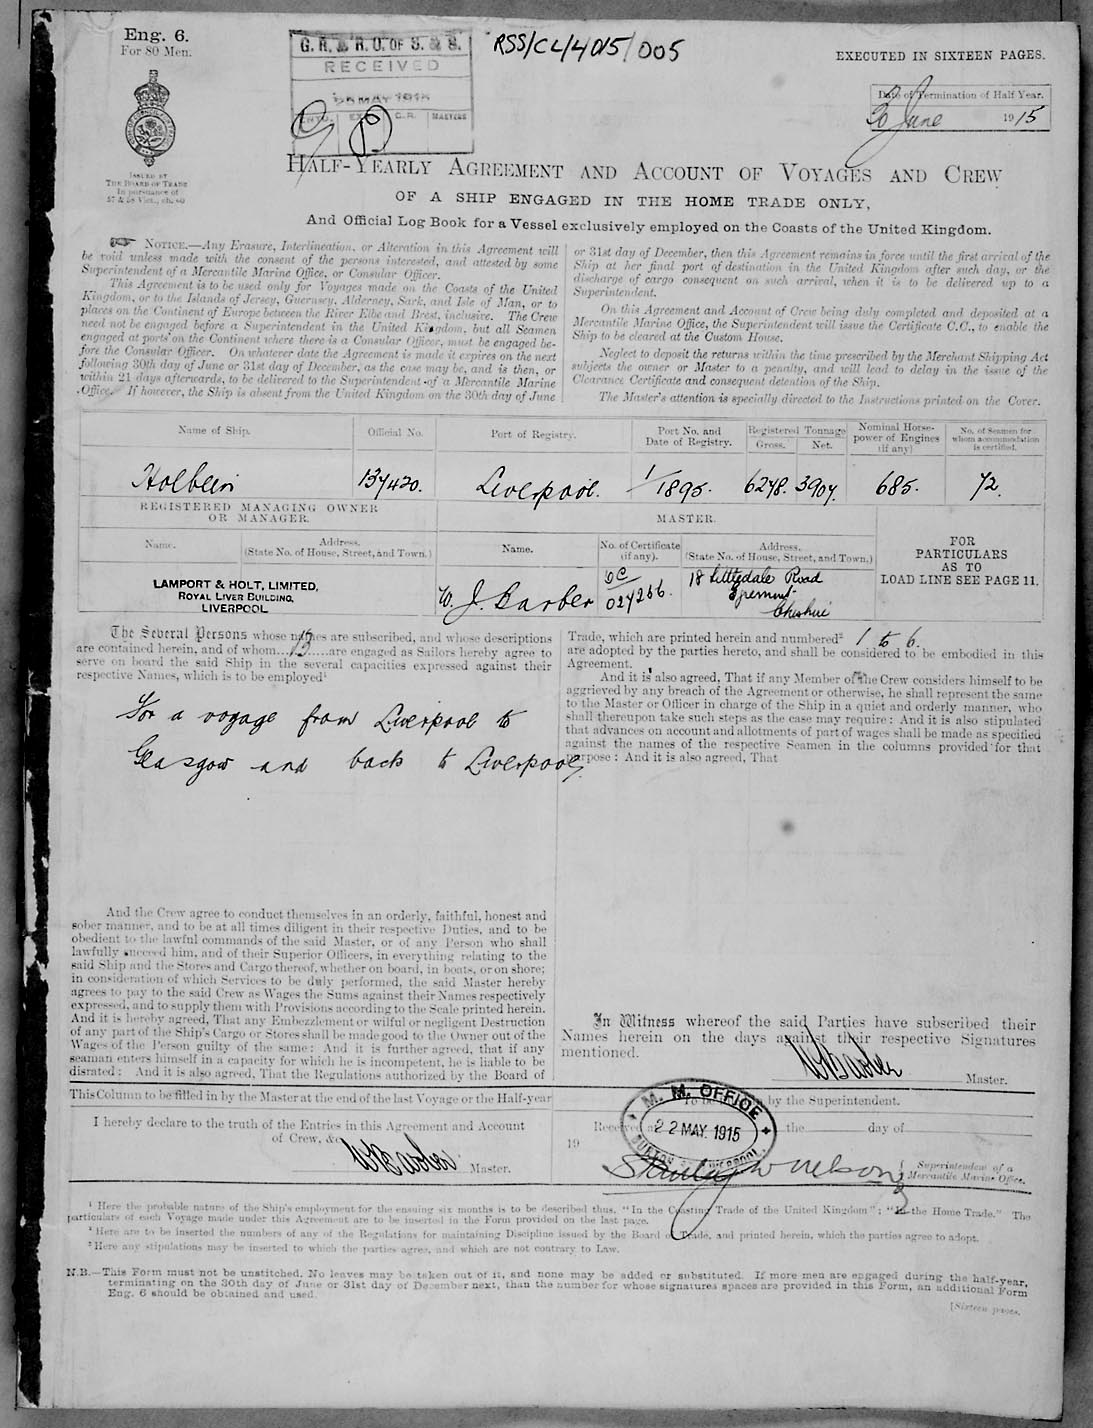 Eng. 6.
For 80 Men.
G. R. & R. O. OF S. & S.
RECEIVED
MAY 1915
C.R.
MASTERS
RSS/CL/4015/005
EXECUTED IN SIXTEEN PAGES.
Date of Termination of Half Year.
30 June 1915
ISSUED BY
THE BOARD OF TRADE
In pursuance of
57 & 58 Vict., ch. 60
HALF-YEARLY AGREEMENT AND ACCOUNT OF VOYAGES AND CREW
OF A SHIP ENGAGED IN THE HOME TRADE ONLY,
And Official Log Book for a Vessel exclusively employed on the Coasts of the United Kingdom.
NOTICE.—Any Erasure, Interlineation, or Alteration in this Agreement will
be void unless made with the consent of the persons interested, and attested by some
Superintendent of a Mercantile Marine Office, or Consular Officer.
This Agreement is to be used only for Voyages made on the Coasts of the United
Kingdom, or to the Islands of Jersey, Guernsey, Alderney, Sark, and Isle of Man, or to
places on the Continent of Europe between the River Elbe and Brest, inclusive. The Crew
need not be engaged before a Superintendent in the United Kingdom, but all Seamen
engaged at ports on the Continent where there is a Consular Officer, must be engaged be-
fore the Consular Officer. On whatever date the Agreement is made it expires on the next
following 30th day of June or 31st day of December, as the case may be, and is then, or
within 21 days afterwards, to be delivered to the Superintendent of a Mercantile Marine
Office. If however, the Ship is absent from the United Kingdom on the 30th day of June
or 31st day of December, then this Agreement remains in force until the first arrival of the
Ship at her final port of destination in the United Kingdom after such day, or the
discharge of cargo consequent on such arrival, when it is to be delivered up to a
Superintendent.
On this Agreement and Account of Crew being duly completed and deposited at a
Mercantile Marine Office, the Superintendent will issue the Certificate C.C., to enable the
Ship to be cleared at the Custom House.
Neglect to deposit the returns within the time prescribed by the Merchant Shipping Act
subjects the owner or Master to a penalty, and will lead to delay in the issue of the
Clearance Certificate and consequent detention of the Ship.
The Master's attention is specially directed to the Instructions printed on the Cover.
Name of Ship.
Official No.
Port of Registry.
Port No. and
Date of Registry.
Registered Tonnage
Gross.
Net.
Nominal Horse-
power of Engines
(if any)
No. of Seamen for
whom accommodation
is certified.
Holbein
137420.
Liverpool.
1/1895.
6278.
3907.
685.
72.
REGISTERED MANAGING OWNER
OR MANAGER.
MASTER.
Name.
Address.
(State No. of House, Street, and Town.)
Name.
No. of Certificate
(if any).
Address.
(State No. of House, Street, and Town.)
FOR
PARTICULARS
AS TO
LOAD LINE SEE PAGE 11.
LAMPORT & HOLT, LIMITED,
ROYAL LIVER BUILDING,
LIVERPOOL
W. J. Barber
024256.
18 Littledale Road
Egremont
Cheshire
The Several Persons whose names are subscribed, and whose descriptions
are contained herein, and of whom 13 are engaged as Sailors hereby agree to
serve on board the said Ship in the several capacities expressed against their
respective Names, which is to be employed¹
For a voyage from Liverpool to
Glasgow and back to Liverpool
Trade, which are printed herein and numbered² 1 to 6.
are adopted by the parties hereto, and shall be considered to be embodied in this
Agreement.
And it is also agreed, That if any Member of the Crew considers himself to be
aggrieved by any breach of the Agreement or otherwise, he shall represent the same
to the Master or Officer in charge of the Ship in a quiet and orderly manner, who
shall thereupon take such steps as the case may require: And it is also stipulated
that advances on account and allotments of part of wages shall be made as specified
against the names of the respective Seamen in the columns provided for that
purpose: And it is also agreed, That
And the Crew agree to conduct themselves in an orderly, faithful, honest and
sober manner, and to be at all times diligent in their respective Duties, and to be
obedient to the lawful commands of the said Master, or of any Person who shall
lawfully succeed him, and of their Superior Officers, in everything relating to the
said Ship and the Stores and Cargo thereof, whether on board, in boats, or on shore;
in consideration of which Services to be duly performed, the said Master hereby
agrees to pay to the said Crew as Wages the Sums against their Names respectively
expressed, and to supply them with Provisions according to the Scale printed herein.
And it is hereby agreed, That any Embezzlement or wilful or negligent Destruction
of any part of the Ship's Cargo or Stores shall be made good to the Owner out of the
Wages of the Person guilty of the same: And it is further agreed, that if any
seaman enters himself in a capacity for which he is incompetent, he is liable to be
disrated: And it is also agreed, That the Regulations authorized by the Board of
In Witness whereof the said Parties have subscribed their
Names herein on the days against their respective Signatures
mentioned.
WJBarber Master.
This Column to be filled in by the Master at the end of the last Voyage or the Half-year
I hereby declare to the truth of the Entries in this Agreement and Account
of Crew, &c.
WJBarber Master.
by the Superintendent.
Received at the day of
19
M. M. OFFICE
22 MAY. 1915
LIVERPOOL
Stanley W Nelson
Superintendent of a
Mercantile Marine Office.
¹ Here the probable nature of the Ship's employment for the ensuing six months is to be described thus, "In the Coasting Trade of the United Kingdom"; "In the Home Trade." The
particulars of each Voyage made under this Agreement are to be inserted in the Form provided on the last page.
² Here are to be inserted the numbers of any of the Regulations for maintaining Discipline issued by the Board of Trade, and printed herein, which the parties agree to adopt.
³ Here any stipulations may be inserted to which the parties agree, and which are not contrary to Law.
N.B.—This Form must not be unstitched. No leaves may be taken out of it, and none may be added or substituted. If more men are engaged during the half-year,
terminating on the 30th day of June or 31st day of December next, than the number for whose signatures spaces are provided in this Form, an additional Form
Eng. 6 should be obtained and used.
[Sixteen pages.